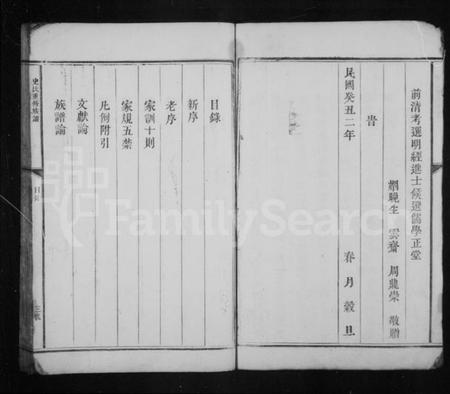 前清考選明經進士候選儒學正堂
姻晚生 雲齋 周龍榮 敬贈
旹
民國癸丑二年 春月穀旦
目錄
新序
老序
家訓十則
家規五禁
凡例附引
文獻論
族譜論
史氏重修族譜
目錄
FamilySearch